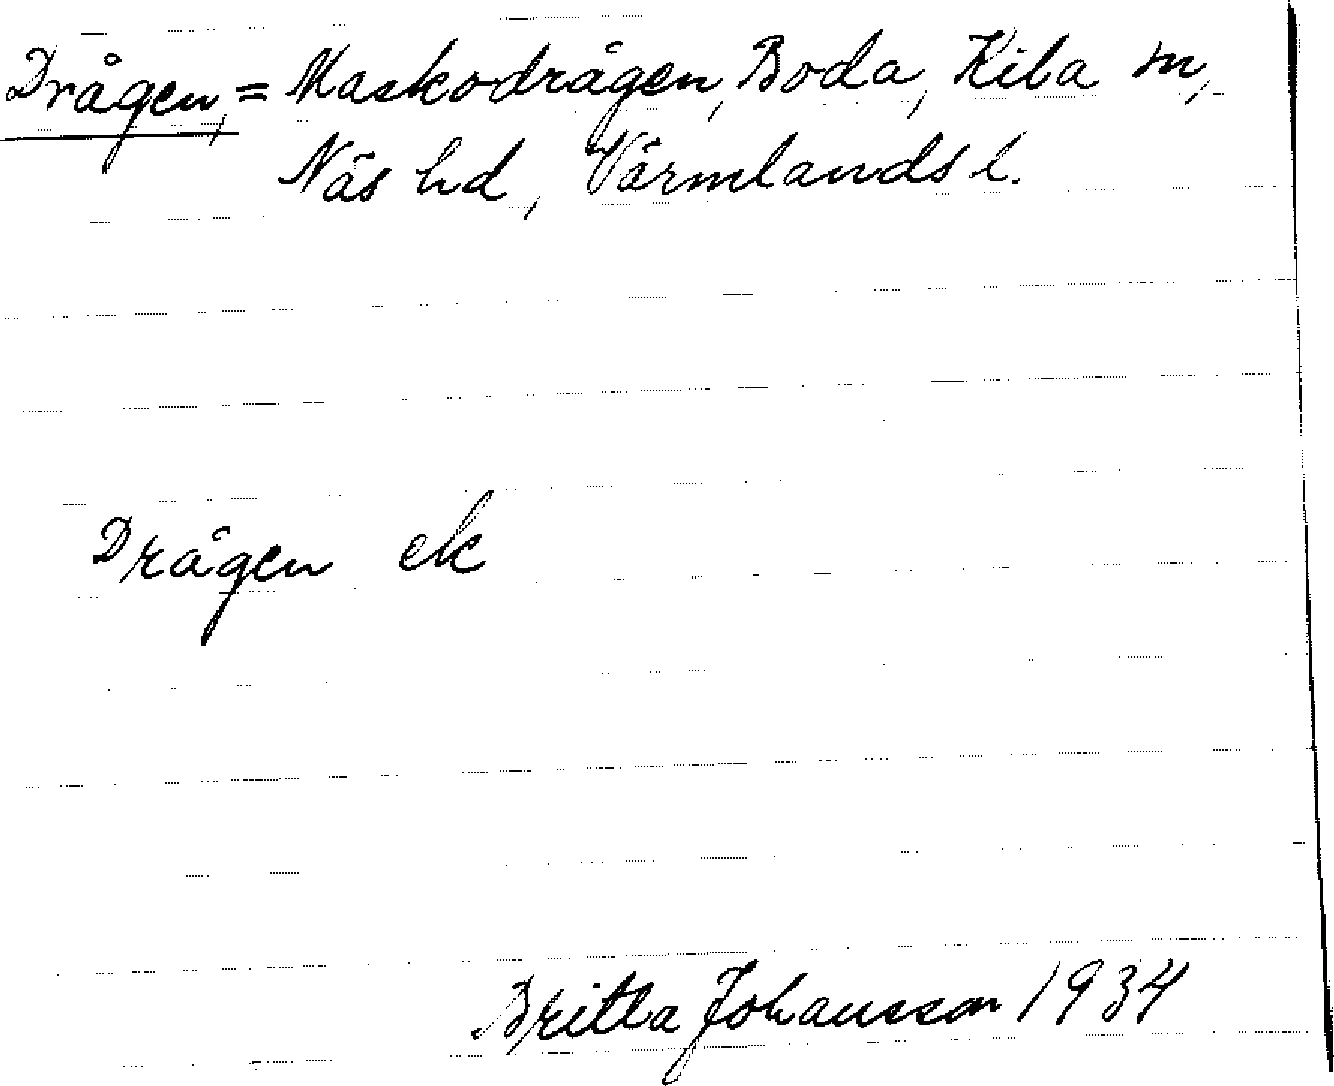 Drågen, = Maskodrågen, Boda, Kila sn,
Näs hd, Värmlands l.
Drågen ek
Britta Johansson 1934